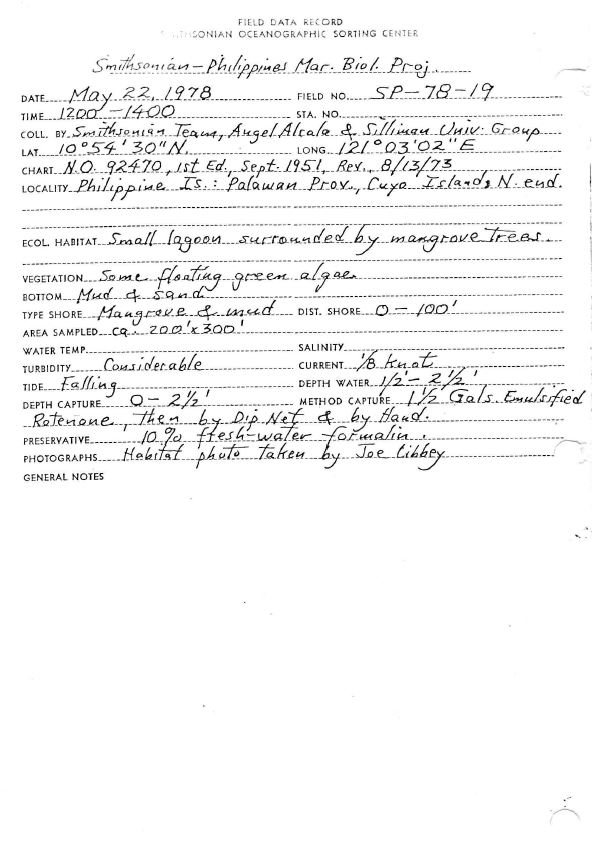 FIELD DATA RECORD
SMITHSONIAN OCEANOGRAPHIC SORTING CENTER
Smithsonian-Philippines Mar. Biol. Proj.
DATE May 22, 1978 FIELD NO. SP-78-19
TIME 1200-1400 STA. NO.
COLL. BY Smithsonian Team, Angel Alcala & Silliman Univ. Group
LAT. 10°54'30"N. LONG 121°03'02"E
CHART N.O. 92470, 1st Ed., Sept. 1951, Rev., 8/13/73
LOCALITY Philippine Is.: Palawan Prov., Cuyo Islands, N. end.
ECOL. HABITAT Small lagoon surrounded by mangrove trees.
VEGETATION Some floating green algae
BOTTOM Mud & sand
TYPE SHORE Mangrove & mud DIST. SHORE 0-100'
AREA SAMPLED ca. 200'x300'
WATER TEMP. SALINITY
TURBIDITY Considerable CURRENT 1/8 Knot
TIDE Falling DEPTH WATER 1/2'-2 1/2'
DEPTH CAPTURE 0-2 1/2' METHOD CAPTURE 1 1/2 Gals. Emulsified
Rotenone, then by Dip Net & by Hand.
PRESERVATIVE 10% fresh-water formalin.
PHOTOGRAPHS Habitat photo taken by Joe Libbey
GENERAL NOTES